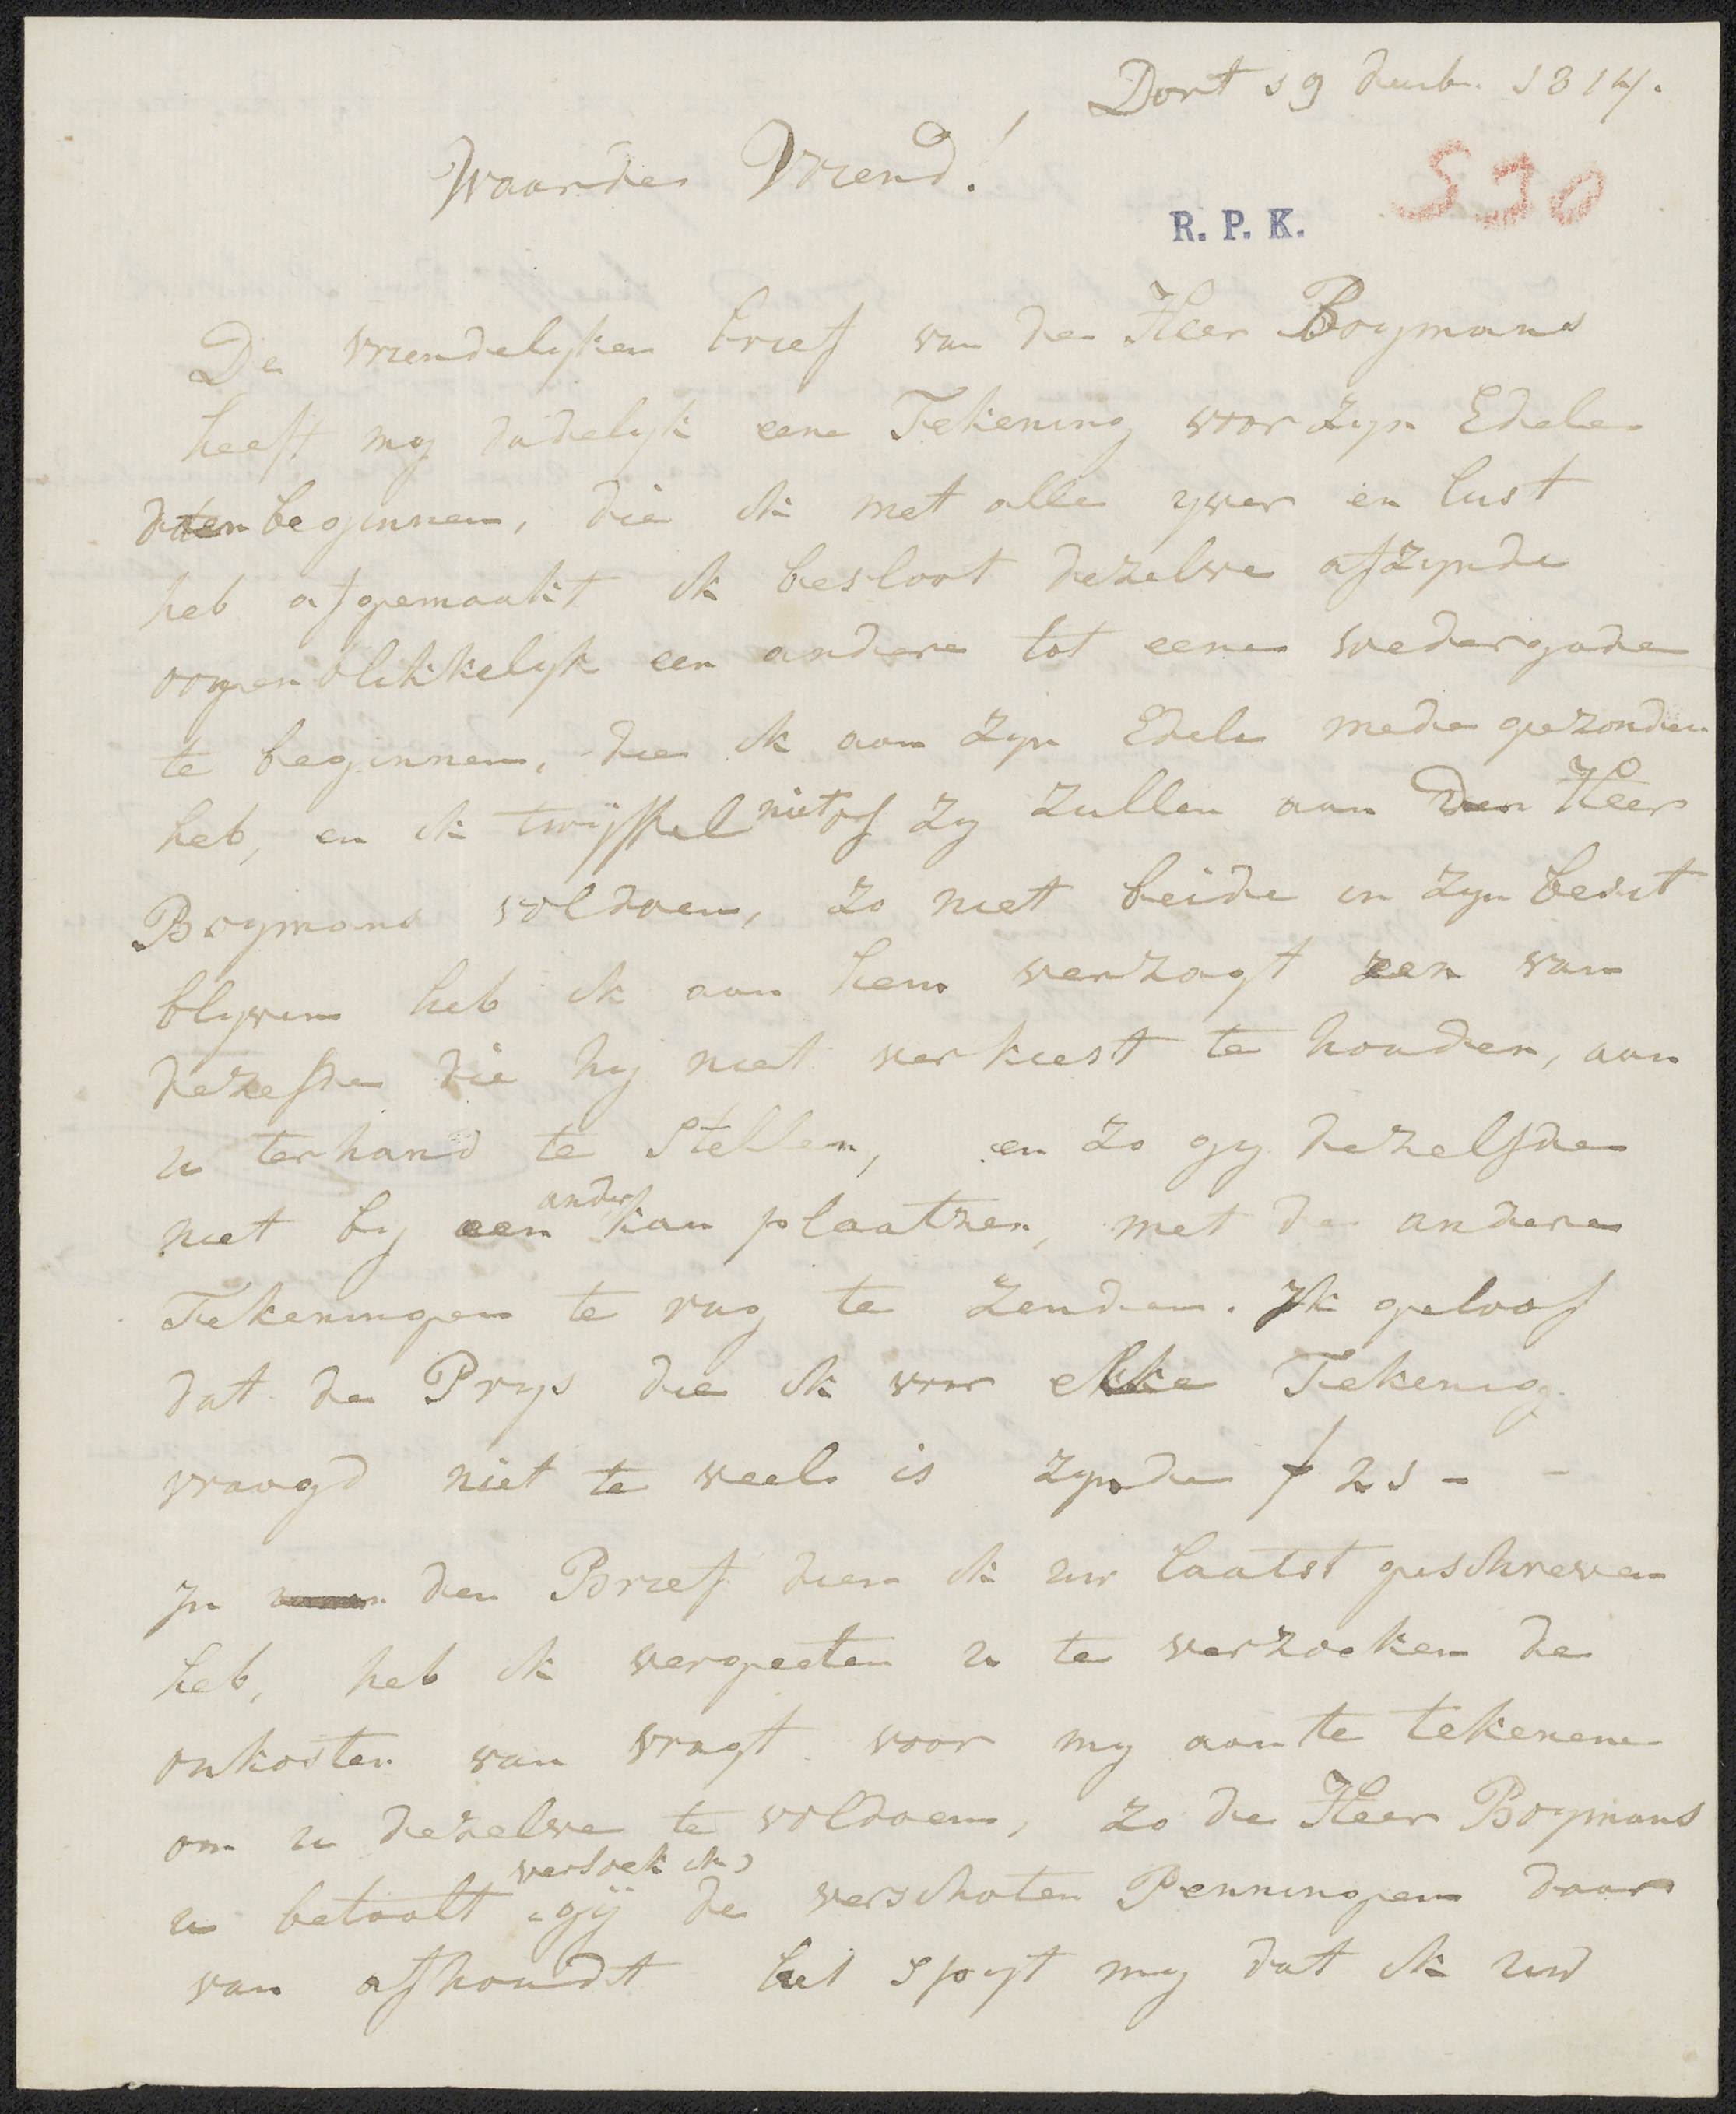 Dort 19 decb. 1814.
Waarde Vriend!
R. P. K.
530
De vriendelyken brief van de Heer Boymans
heeft my dadelyk eene Tekening voor zyn Edele
doen beginnen, die ik met alle yver en lust
heb afgemaakt ik besloot dezelve afzynde
oogenblikkelyk een andere tot eene wedergade
te beginnen, die ik aan zyn Edele mede gezonden
heb, en ik twijffel niet of zy zullen aan den Heer
Boymans voldoen, zo niet beide in zyn besit
blyven heb ik aan hem verzogt een van
dezefde die hy niet verkiest te houden, aan
u ter hand te stellen, en zo gy dezelfde
niet by een ander kan plaatzen, met de andere
Tekeningen te rug te zenden. Ik geloof
dat de Prys die ik voor elke Tekenig
vraagd niet te veel is zynde f 25 - -
In den Brief dien ik uw laatst geschreven
heb, heb ik vergeeten u te verzoeken de
onkosten van vragt voor my aan te tekenen
om u dezelve te voldoen, zo de Heer Boymans
u betaalt versoek ik gÿ de verschoten Penningen daar
van afhoudt het spyt my dat ik uw